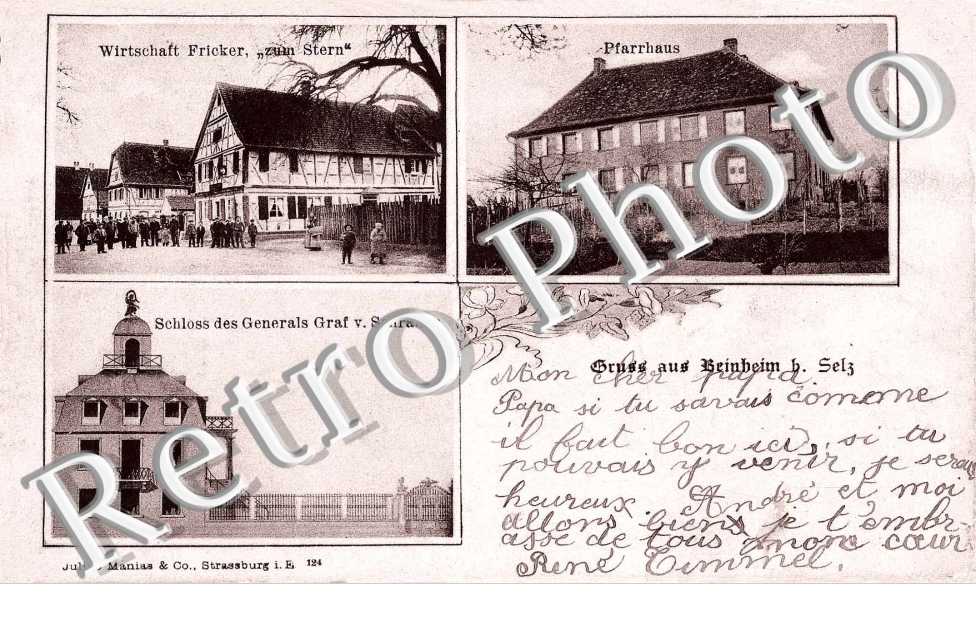 Wirtschaft Fricker, „zum Stern“
Pfarrhaus
Schloss des Generals Graf v.
Gruss aus Beinheim b. Selz
Mon cher papa.
Papa si tu savais comeme
il fait bon ici, si tu
pouvais y venir, je serai
heureux. André et moi
allons biens je t'embr-
asse de tous mon cœur
René Eimmel.
Manias & Co., Strassburg i. E 124
Retro Photo